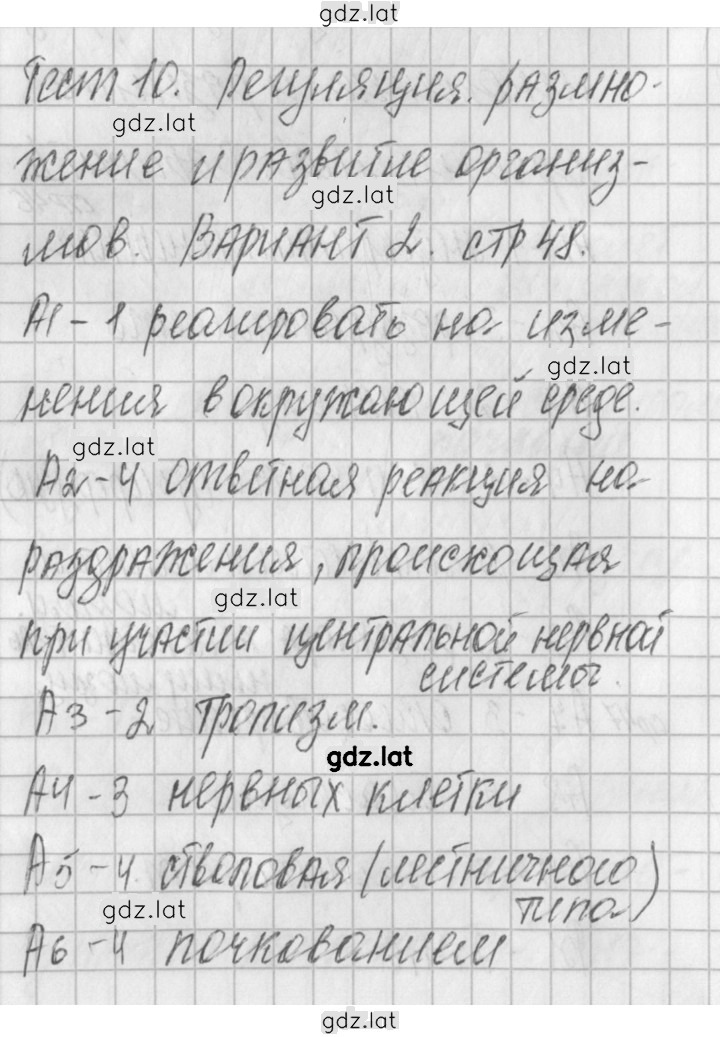 gdz.lat
Тест 10. Регуляция. размно-
gdz.lat
жение и развитие организ-
gdz.lat
мов. Вариант 2. стр 48.
А1-1 реагировать на изме-
gdz.lat
нения в окружающей среде.
gdz.lat
А2-4 ответная реакция на
раздражения, происходящая
gdz.lat
при участии центральной нервной
системы.
А3-2 тропизм.
gdz.lat
А4-3 нервных клетки
А5-4 стволовая (лестничного
gdz.lat
типа)
А6-4 почкованием
gdz.lat